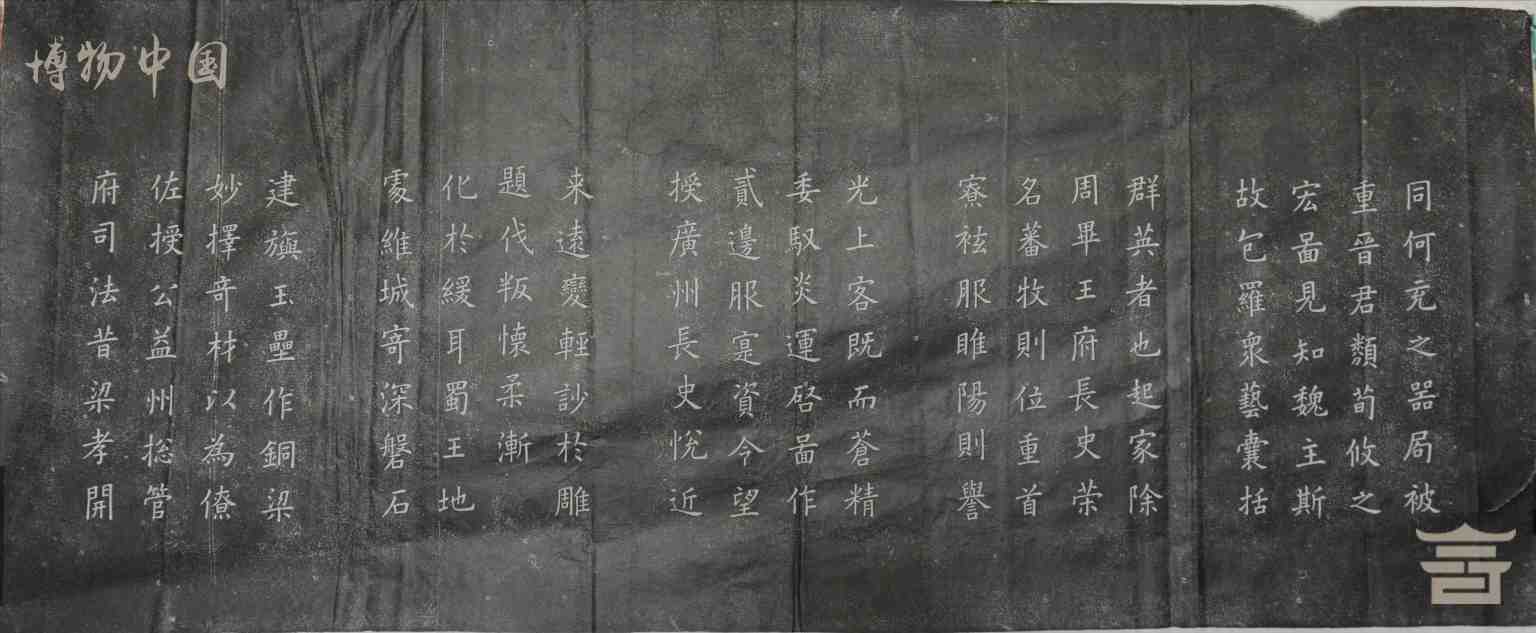 博物中国
同何充之器局被
重晉君類荀攸之
宏啚見知魏主斯
故包羅衆藝囊括
群英者也起家除
周畢王府長史荣
名蕃牧則位重首
寮袨服睢陽則譽
光上客既而蒼精
委馭炎運啓啚作
貳邊服寔資令望
授廣州長史悅近
来遠變輕訬於雕
題伐叛懷柔漸
化於緩耳蜀王地
處維城寄深磐石
建旟玉壘作銅梁
妙擇奇材以為僚
佐授公益州捴管
府司法昔梁孝開